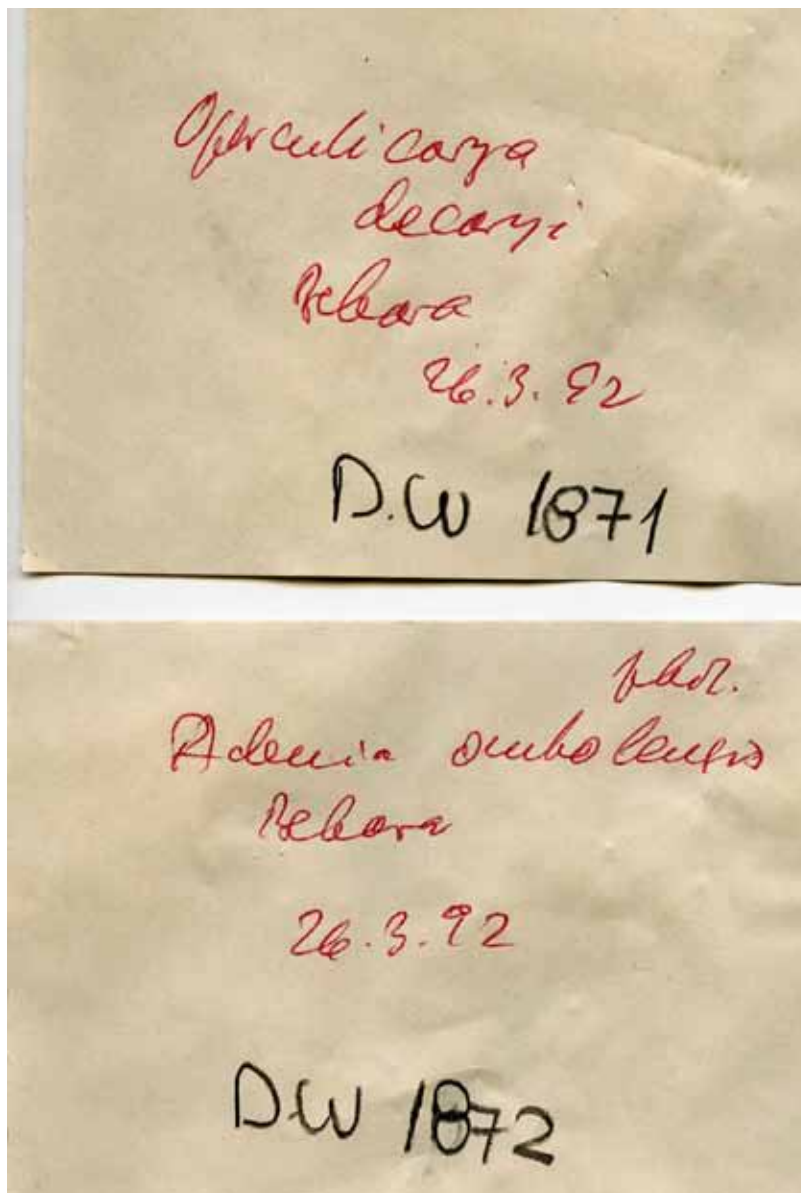 Operculicarya
decaryi
Behara
26.3.92
D.W 1871
phot.
Adenia ombolensis
Behara
26.3.92
DW 1872